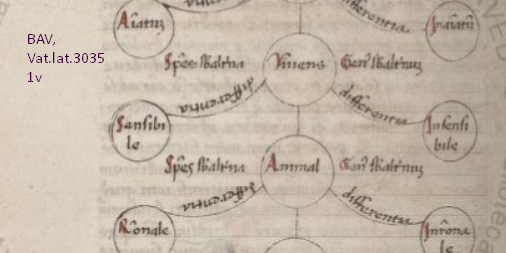 BAV,
Vat.lat.3035
1v
differentia
Aīatum
Inaīatū
Spēs sbaltrna
Viuens
Gen9 sbaltrnuz
differentia
differentia
Sensibi
le
Insensi
bile
Spēs sbaltrna
Animal
Gen9 sbaltrnuz
differentia
differentia
Rōnale
Inrona
le